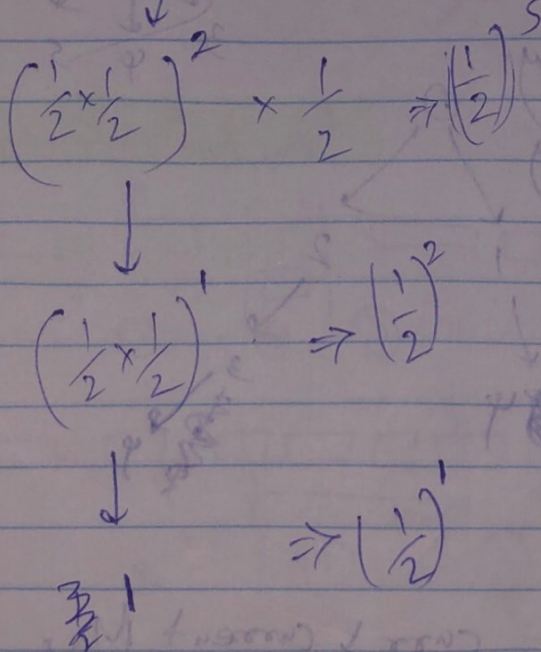 (1/2 × 1/2)² × 1/2 ⇒ (1/2)⁵
↓
(1/2 × 1/2)¹ ⇒ (1/2)²
↓
1 ⇒ (1/2)¹